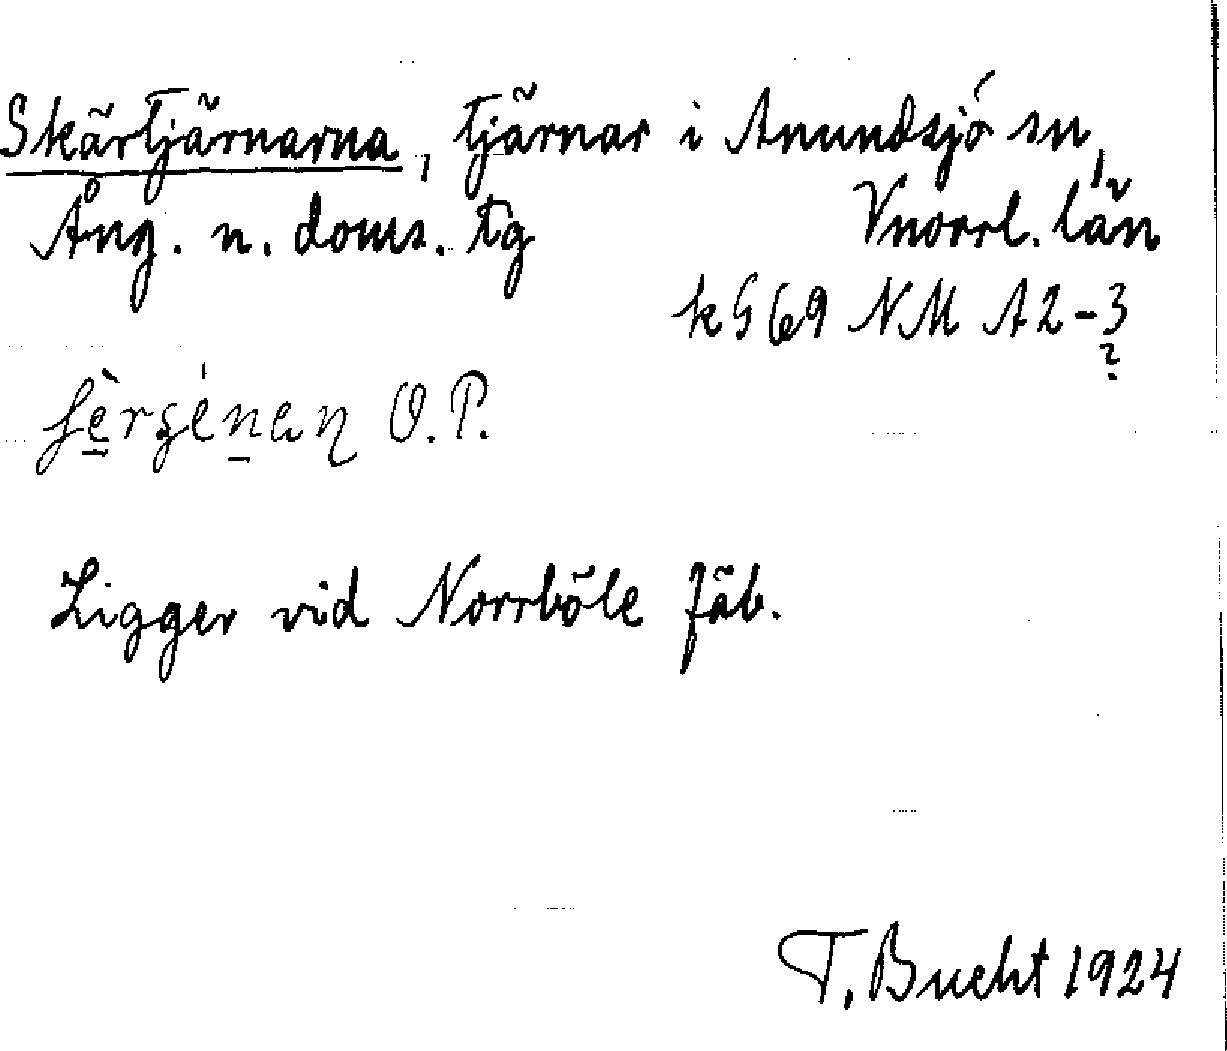 Skärtjärnarna, tjärnar i Anundsjö sn,
Ång. n. doms. tg Vnorrl. län
k G 69 NM A2-3
?
O.P.
Ligger vid Norrböle fäb.
T. Bucht 1924